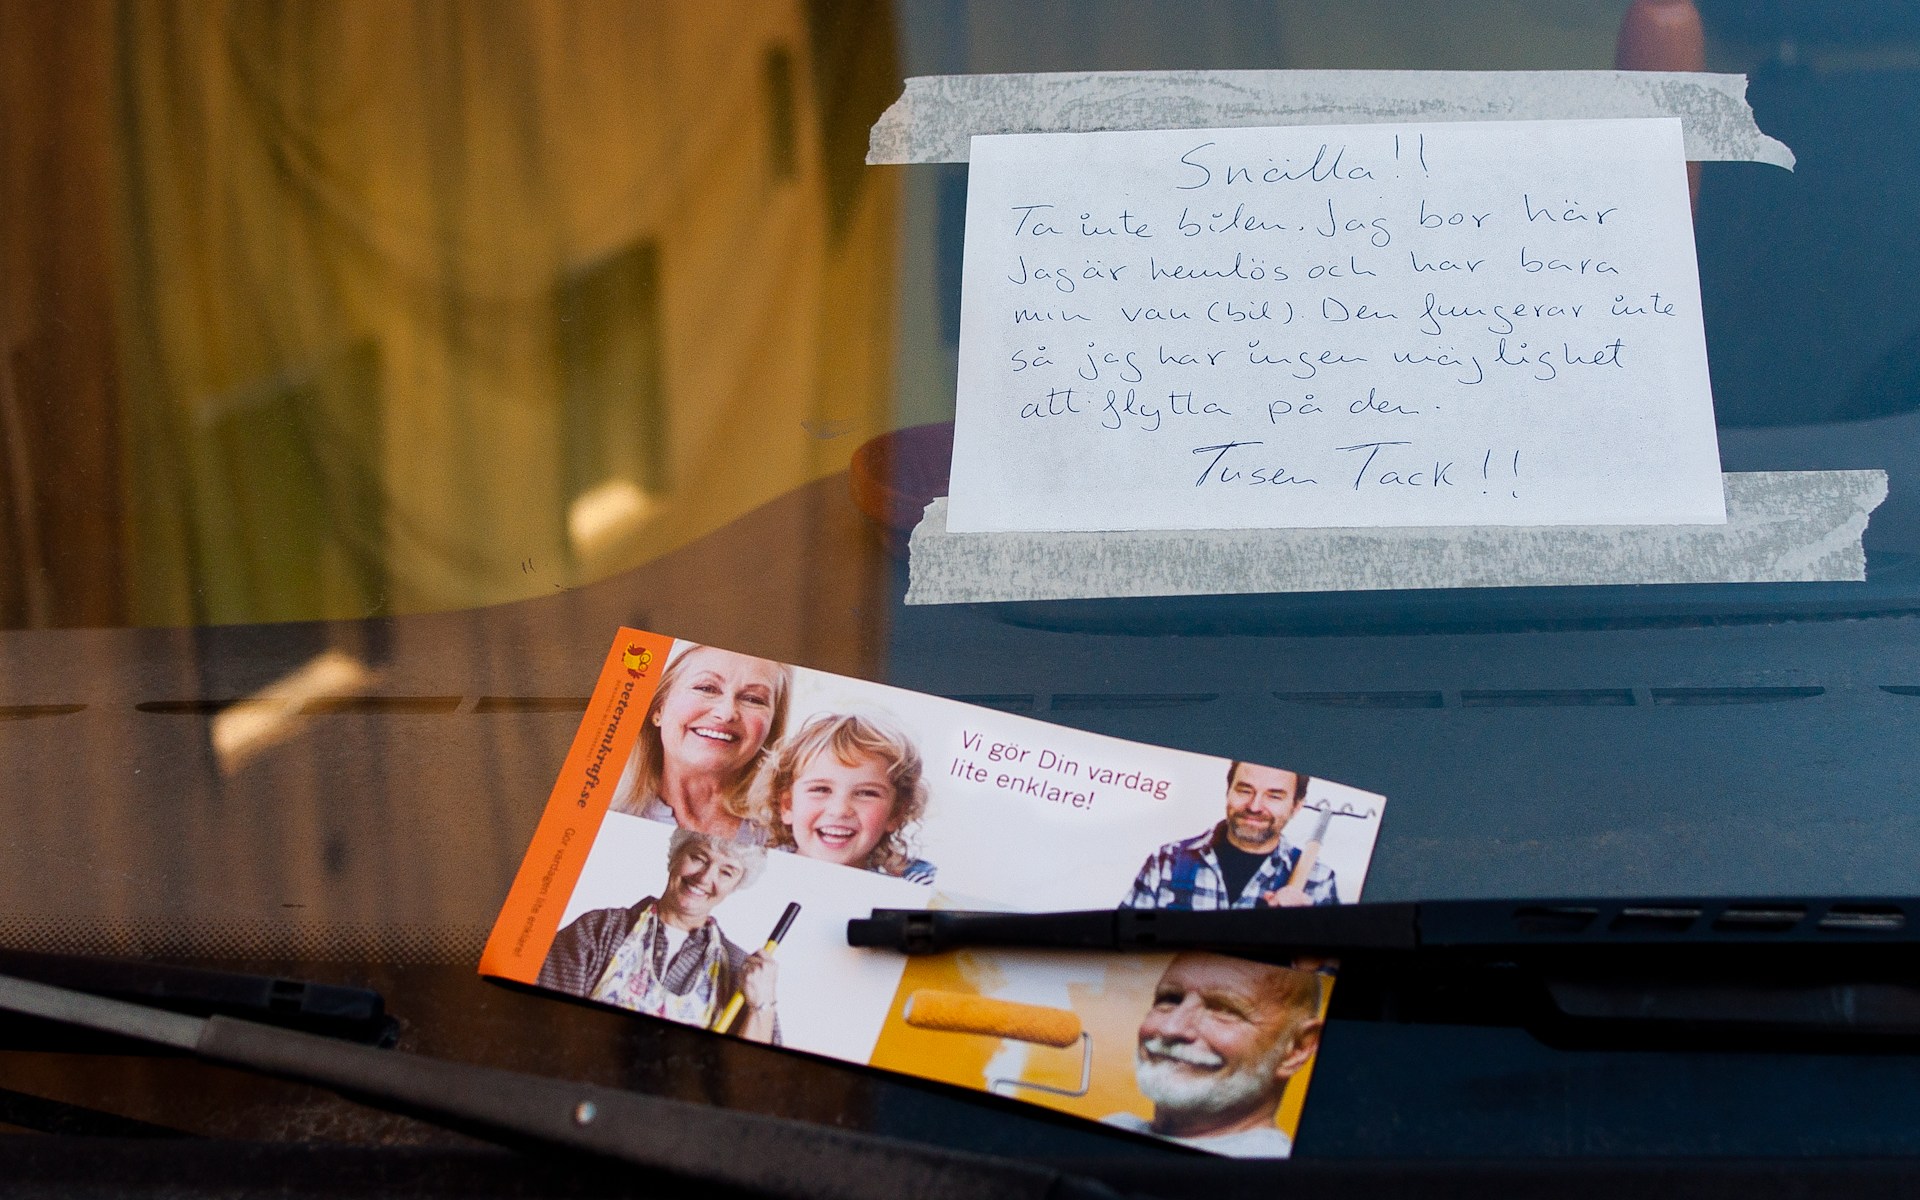 Snälla!!
Ta inte bilen. Jag bor här
Jag är hemlös och har bara
min van (bil). Den fungerar inte
så jag har ingen möjlighet
att flytta på den.
Tusen Tack!!
veterankraft.se
Gör vardagen lite enklare!
Vi gör Din vardag
lite enklare!